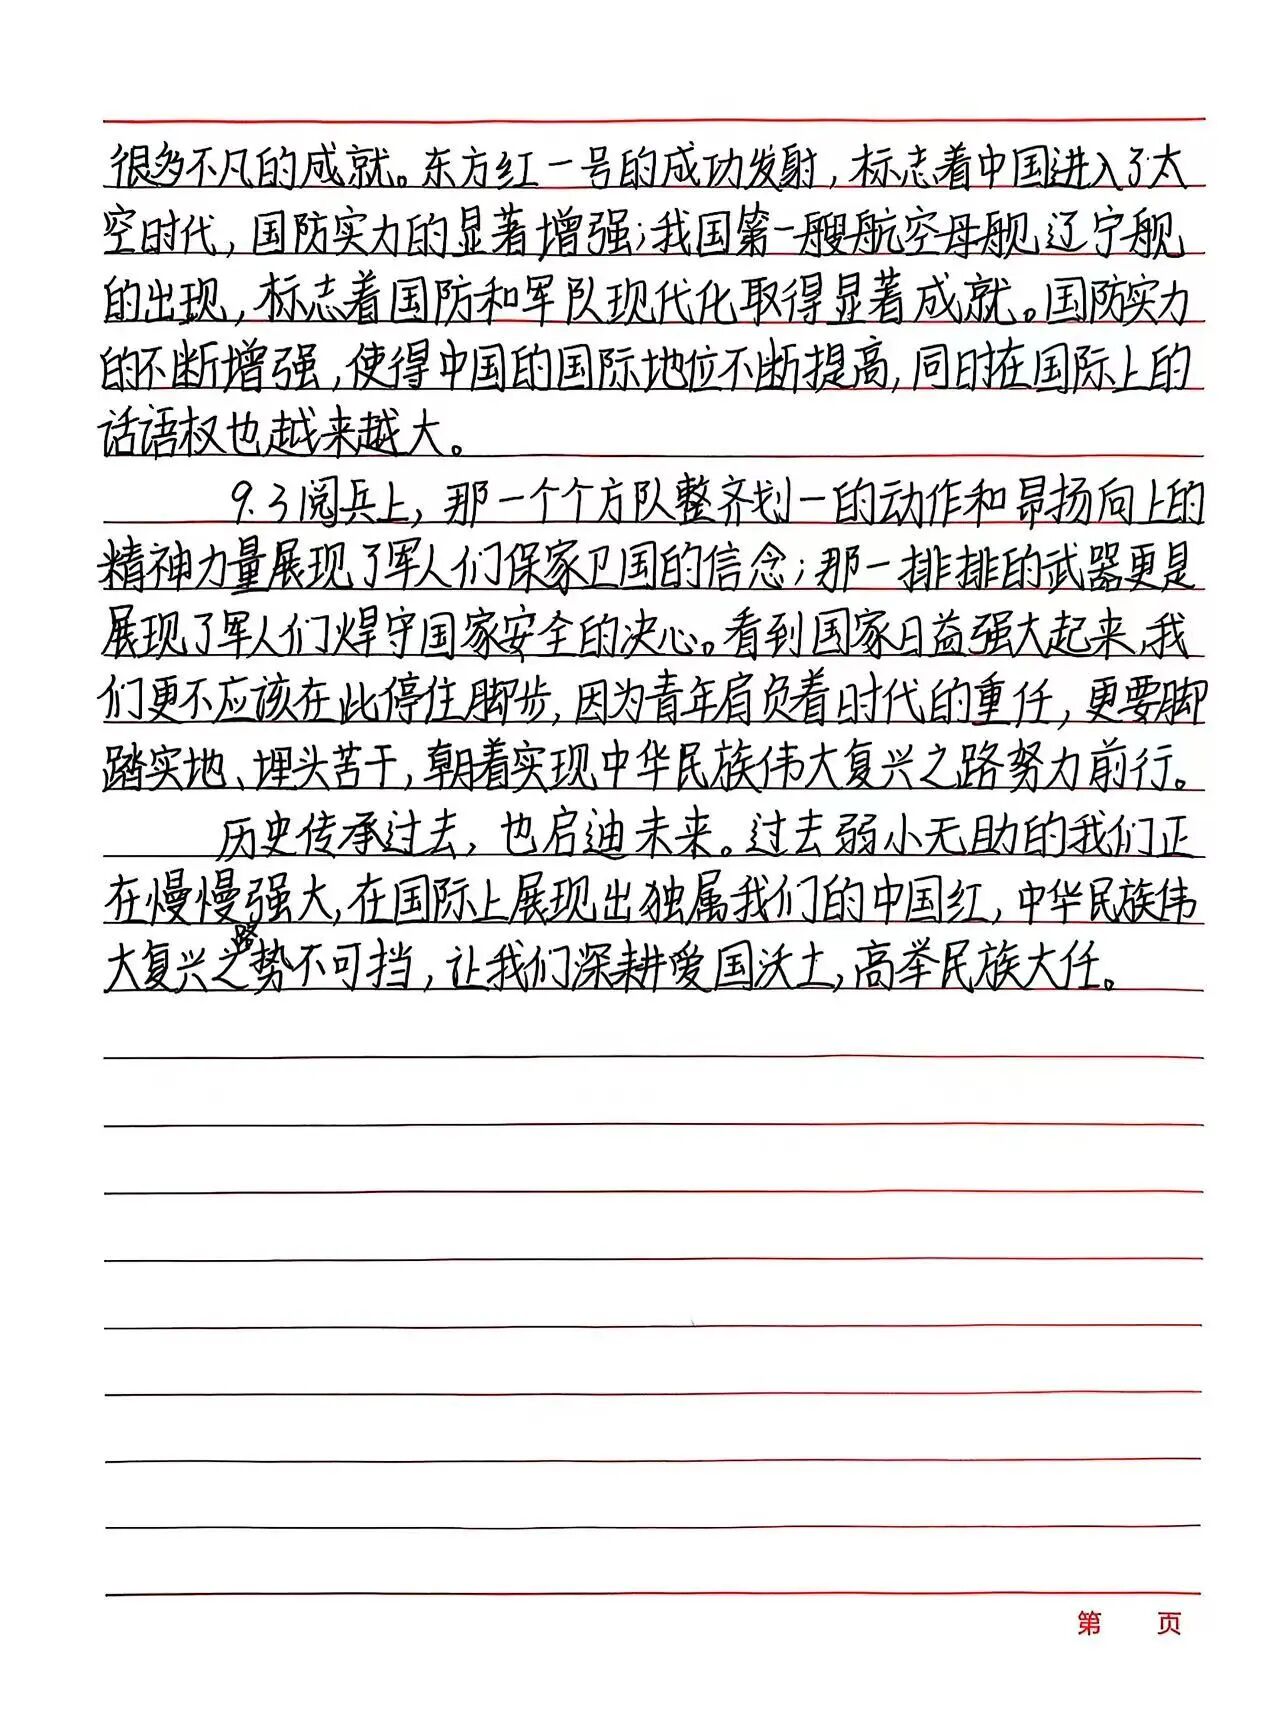 很多不凡的成就。东方红一号的成功发射，标志着中国进入了太
空时代，国防实力的显著增强；我国第一艘航空母舰辽宁舰
的出现，标志着国防和军队现代化取得显著成就。国防实力
的不断增强，使得中国的国际地位不断提高，同时在国际上的
话语权也越来越大。
9.3阅兵上，那一个个方队整齐划一的动作和昂扬向上的
精神力量展现了军人们保家卫国的信念；那一排排的武器更是
展现了军人们捍守国家安全的决心。看到国家日益强大起来，我
们更不应该在此停住脚步，因为青年肩负着时代的重任，更要脚
踏实地、埋头苦干，朝着实现中华民族伟大复兴之路努力前行。
历史传承过去，也启迪未来。过去弱小无助的我们正
在慢慢强大，在国际上展现出独属我们的中国红，中华民族伟
大复兴之路势不可挡，让我们深耕爱国沃土，高举民族大任。
第 页